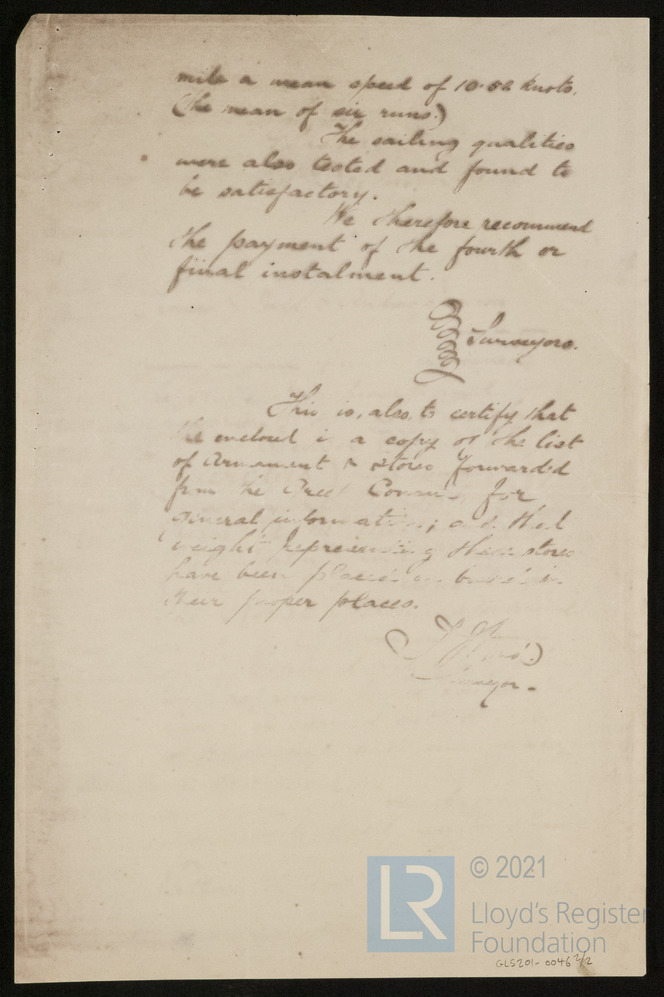 mile a mean speed of 10.52 knots.
(the mean of six runs.)
The sailing qualities
were also tested and found to
be satisfactory.
We therefore recommend
the payment of the fourth or
final instalment.
Surveyors.
This is, also, to certify that
the enclosed is a copy of the list
of Armament & stores forwarded
from the for
general information; and that
weight representing these stores
have been placed on board in
their proper places.
Surveyor.
© 2021
LR
Lloyd's Register
Foundation
GLS201-0046 2/2